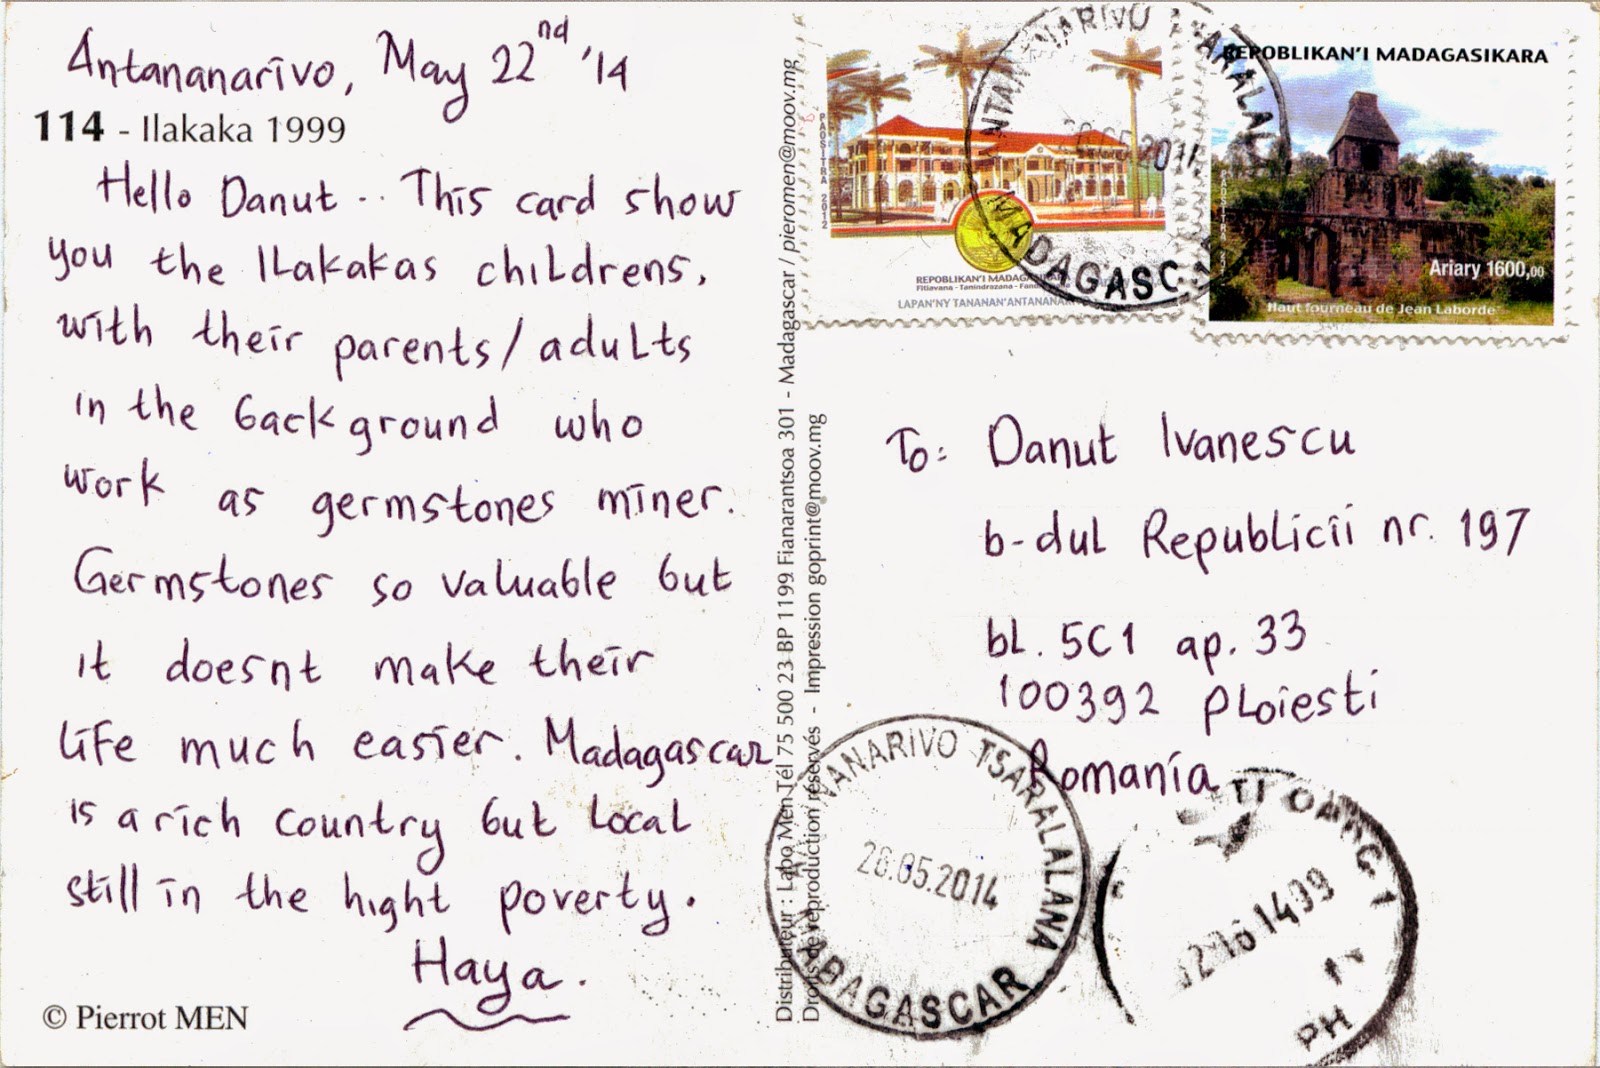 Antananarivo, May 22nd '14
114 - Ilakaka 1999
Hello Danut .. This card show
you the Ilakakas childrens,
with their parents/adults
in the background who
work as germstones miner.
Germstones so valuable but
it doesnt make their
life much easier. Madagascar
is a rich country but local
still in the hight poverty.
Haya.
© Pierrot MEN
Distributeur : Labo Men Tél 75 500 23 BP 1199 Fianarantsoa 301 - Madagascar / pieromen@moov.mg
Droits de reproduction réservés - Impression goprint@moov.mg
PAOSITRA 2012
REPOBLIKAN'I
Fitiavana - Tanindrazana -
LAPAN'NY TANANAN'
MADAGASCAR
REPOBLIKAN'I MADAGASIKARA
Ariary 1600,00
Haut fourneau de Jean Laborde
To: Danut Ivanescu
b-dul Republicii nr. 197
bl. 5C1 ap. 33
100392 Ploiesti
Romania
TSARALALANA
26.05.2014
MADAGASCAR
PH